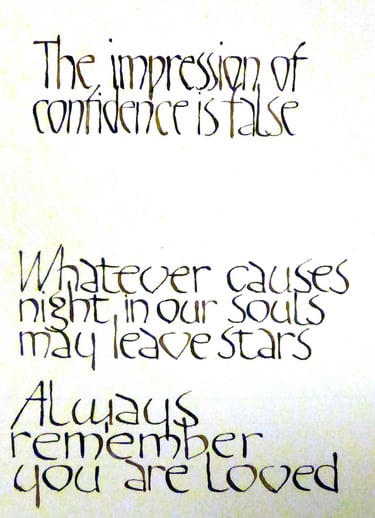 The impression of
confidence is false
Whatever causes
night in our souls
may leave stars
Always
remember
you are Loved